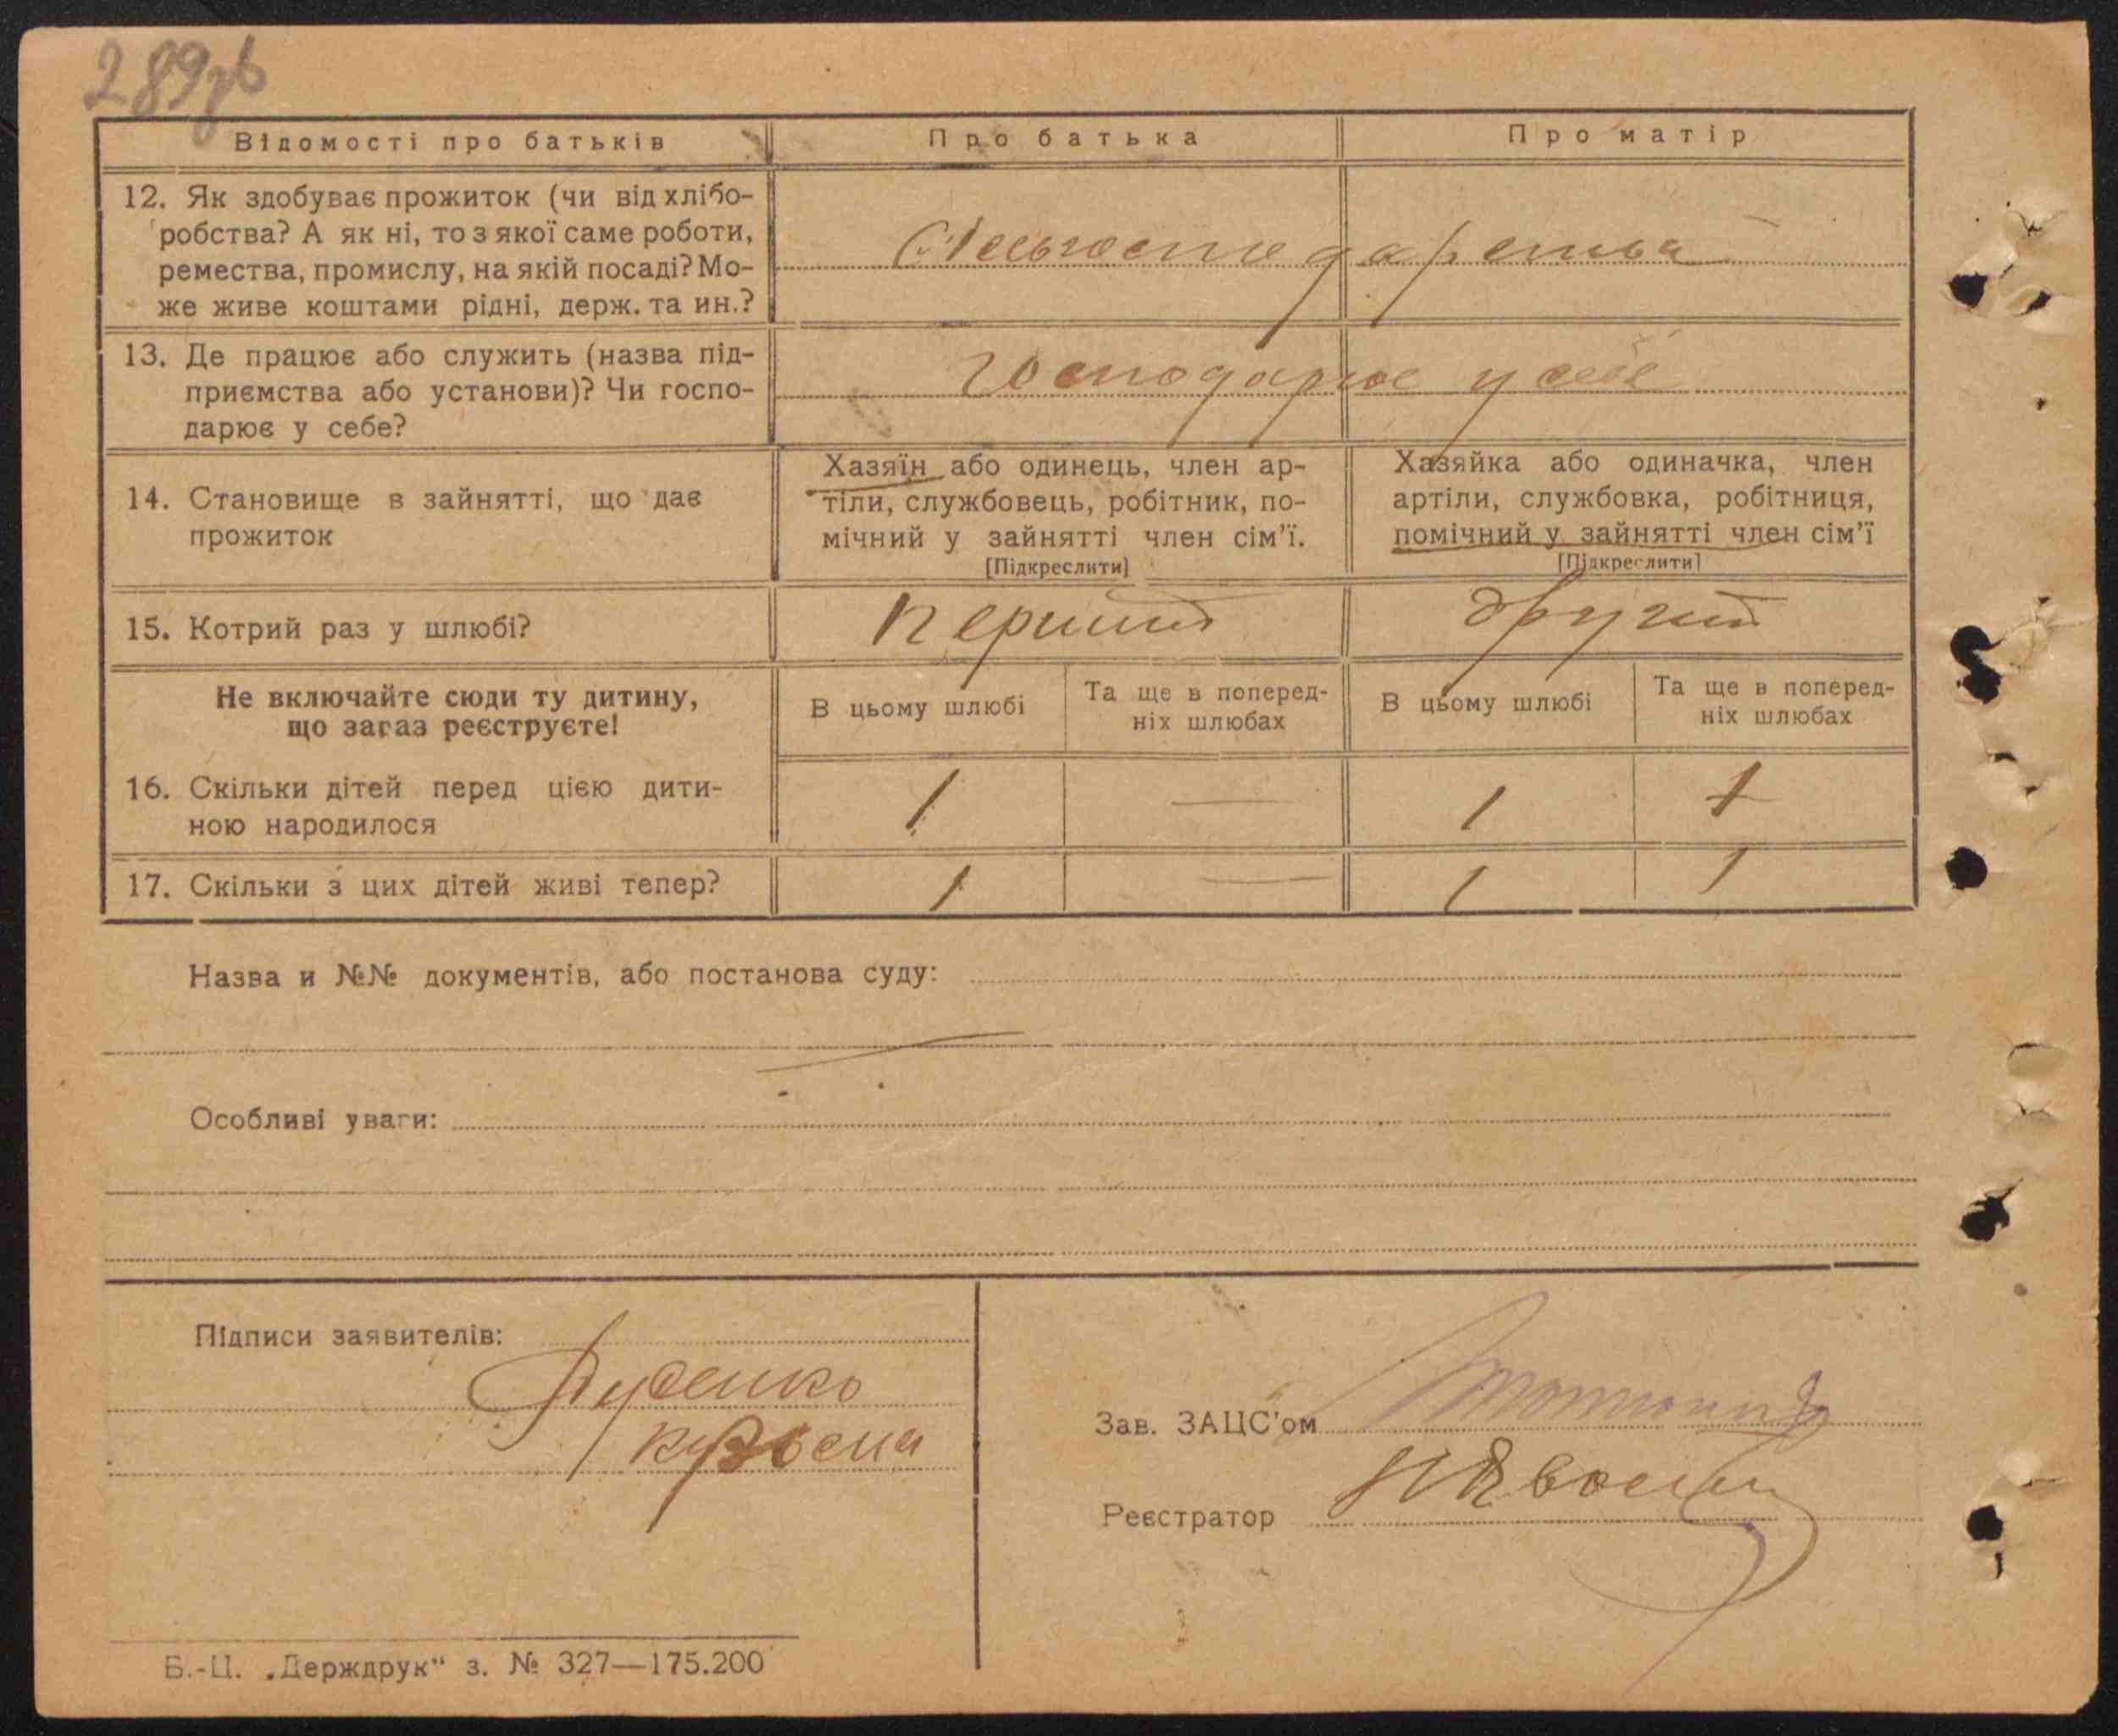 289зв
Відомості про батьків Про батька Про матір
12. Як здобуває прожиток (чи від хлібо-
робства? А як ні, то з якої саме роботи,
ремества, промислу, на якій посаді? Мо-
же живе коштами рідні, держ. та ин.?
13. Де працює або служить (назва під-
приємства або установи)? Чи госпо-
дарює у себе?
господарює у себе
14. Становище в зайнятті, що дає
прожиток
Хазяїн або одинець, член ар-
тіли, службовець, робітник, по-
мічний у зайнятті член сім'ї.
[Підкреслити]
Хазяйка або одиначка, член
артіли, службовка, робітниця,
помічний у зайнятті член сім'ї
[Підкреслити]
15. Котрий раз у шлюбі? перший другий
Не включайте сюди ту дитину,
що зараз реєструєте!
В цьому шлюбі
Та ще в поперед-
ніх шлюбах
В цьому шлюбі
Та ще в поперед-
ніх шлюбах
16. Скільки дітей перед цією дити-
ною народилося
1 — 1 1
17. Скільки з цих дітей живі тепер? 1 — 1 1
Назва и №№ документів, або постанова суду:
Особливі уваги:
Підписи заявителів:
Зав. ЗАЦС'ом
Реєстратор
Б.-Ц. „Держдрук" з. № 327—175.200